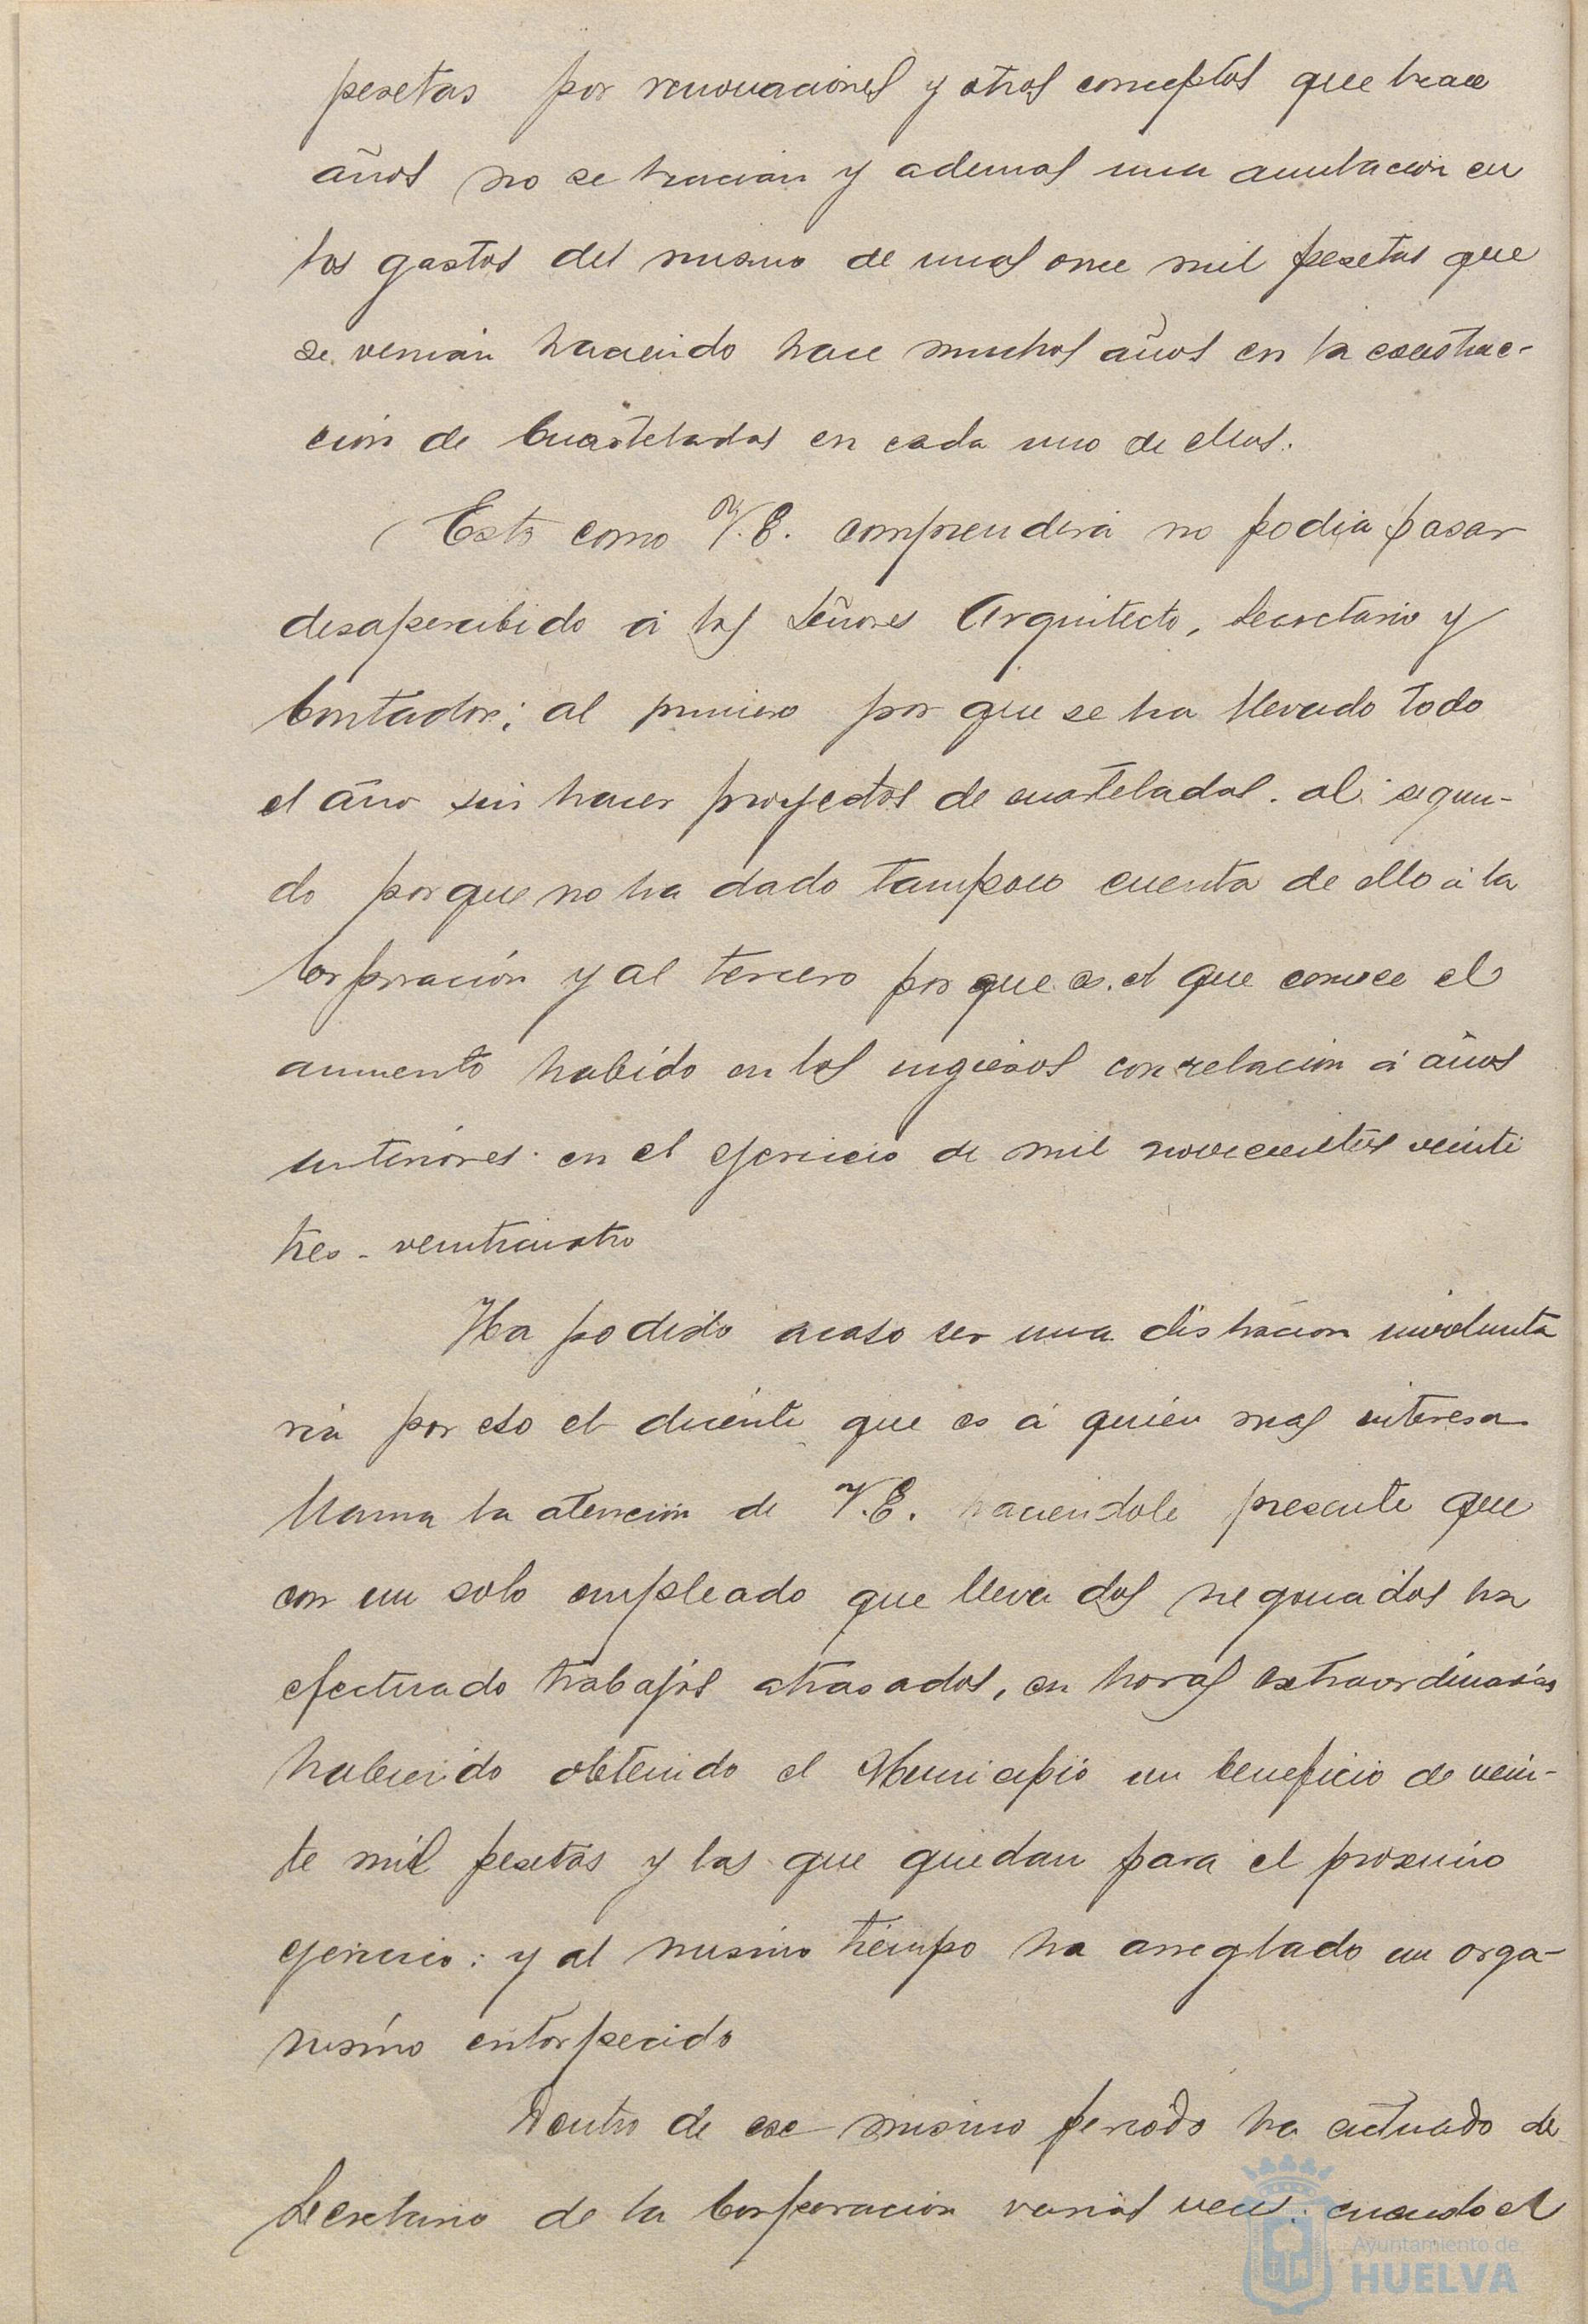 pesetas por renovaciones y otros conceptos que hace
años no se hacian y ademas una anulacion en
los gastos del mismo de unas once mil pesetas que
se venian haciendo hace muchos años en la construc-
cion de Cuarteladas en cada uno de ellos.
Esto como V.E. comprenderá no podia pasar
desapercibido á los Señores Arquitecto, Secretario y
Contador; al primero por que se ha llevado todo
el año sin hacer proyectos de cuarteladas. al segun-
do porque no ha dado tampoco cuenta de ello á la
Corporación y al tercero por que es el que conoce el
aumento habido en los ingresos con relacion á años
anteriores en el ejercicio de mil novecientos veinti
tres - veinticuatro
Ha podido acaso ser una distracion involunta
ria por eso el dicente que es á quien mas interesa
llama la atencion de V.E. haciendole presente que
con un solo empleado que lleva dos negociados ha
efectuado trabajos atrasados, en horas extraordinarias
habiendo obtenido el Municipio un beneficio de vein-
te mil pesetas y las que quedan para el proximo
ejercicio: y al mismo tiempo ha arreglado un orga-
nismo entorpecido
Dentro de ese mismo periodo ha actuado de
Secretario de la Corporacion varias veces cuando el
Ayuntamiento de
HUELVA